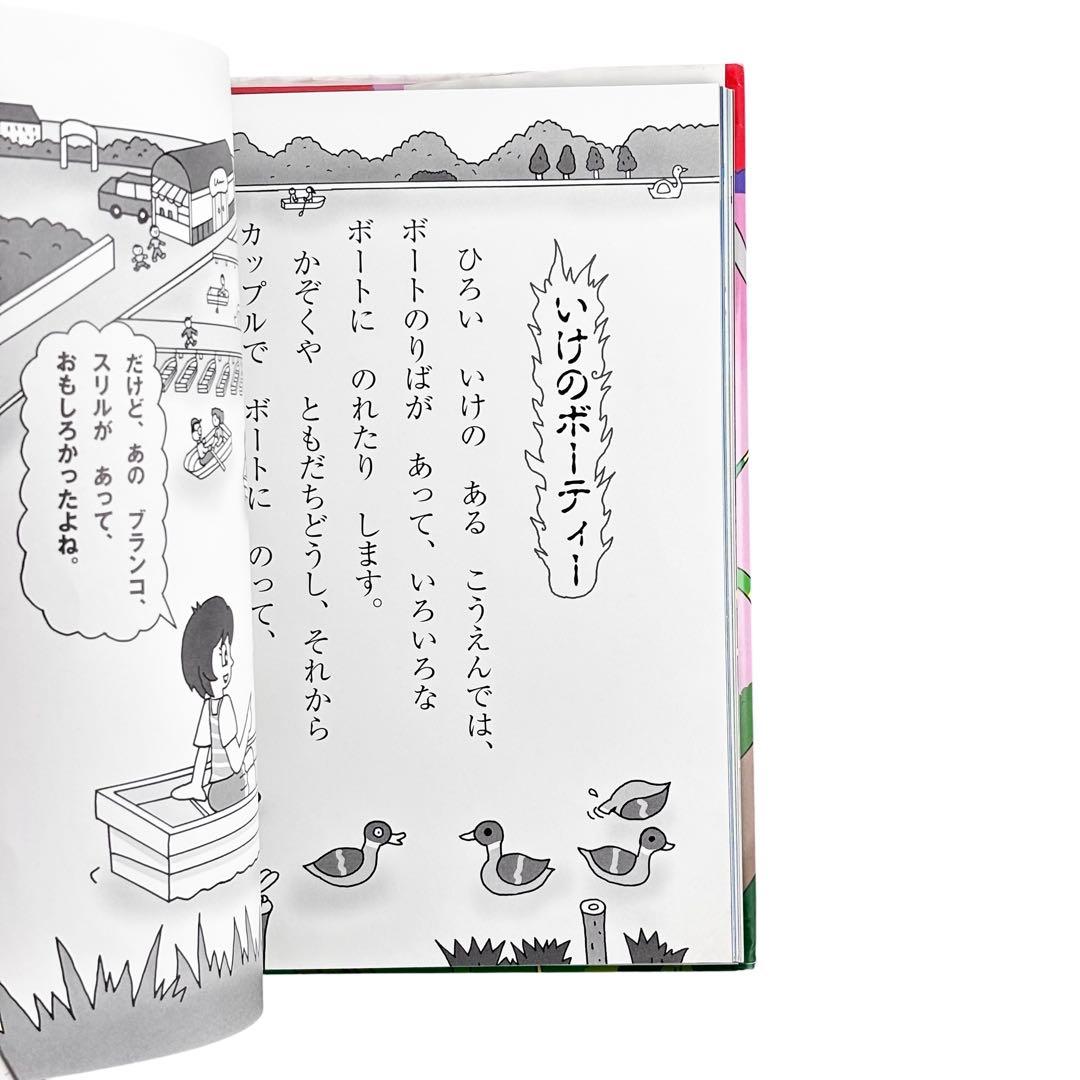 いけのボーティー
ひろい いけの ある こうえんでは、
ボートのりばが あって、いろいろな
ボートに のれたり します。
かぞくや ともだちどうし、それから
カップルで ボートに のって、
だけど、あの ブランコ、
スリルが あって、
おもしろかったよね。